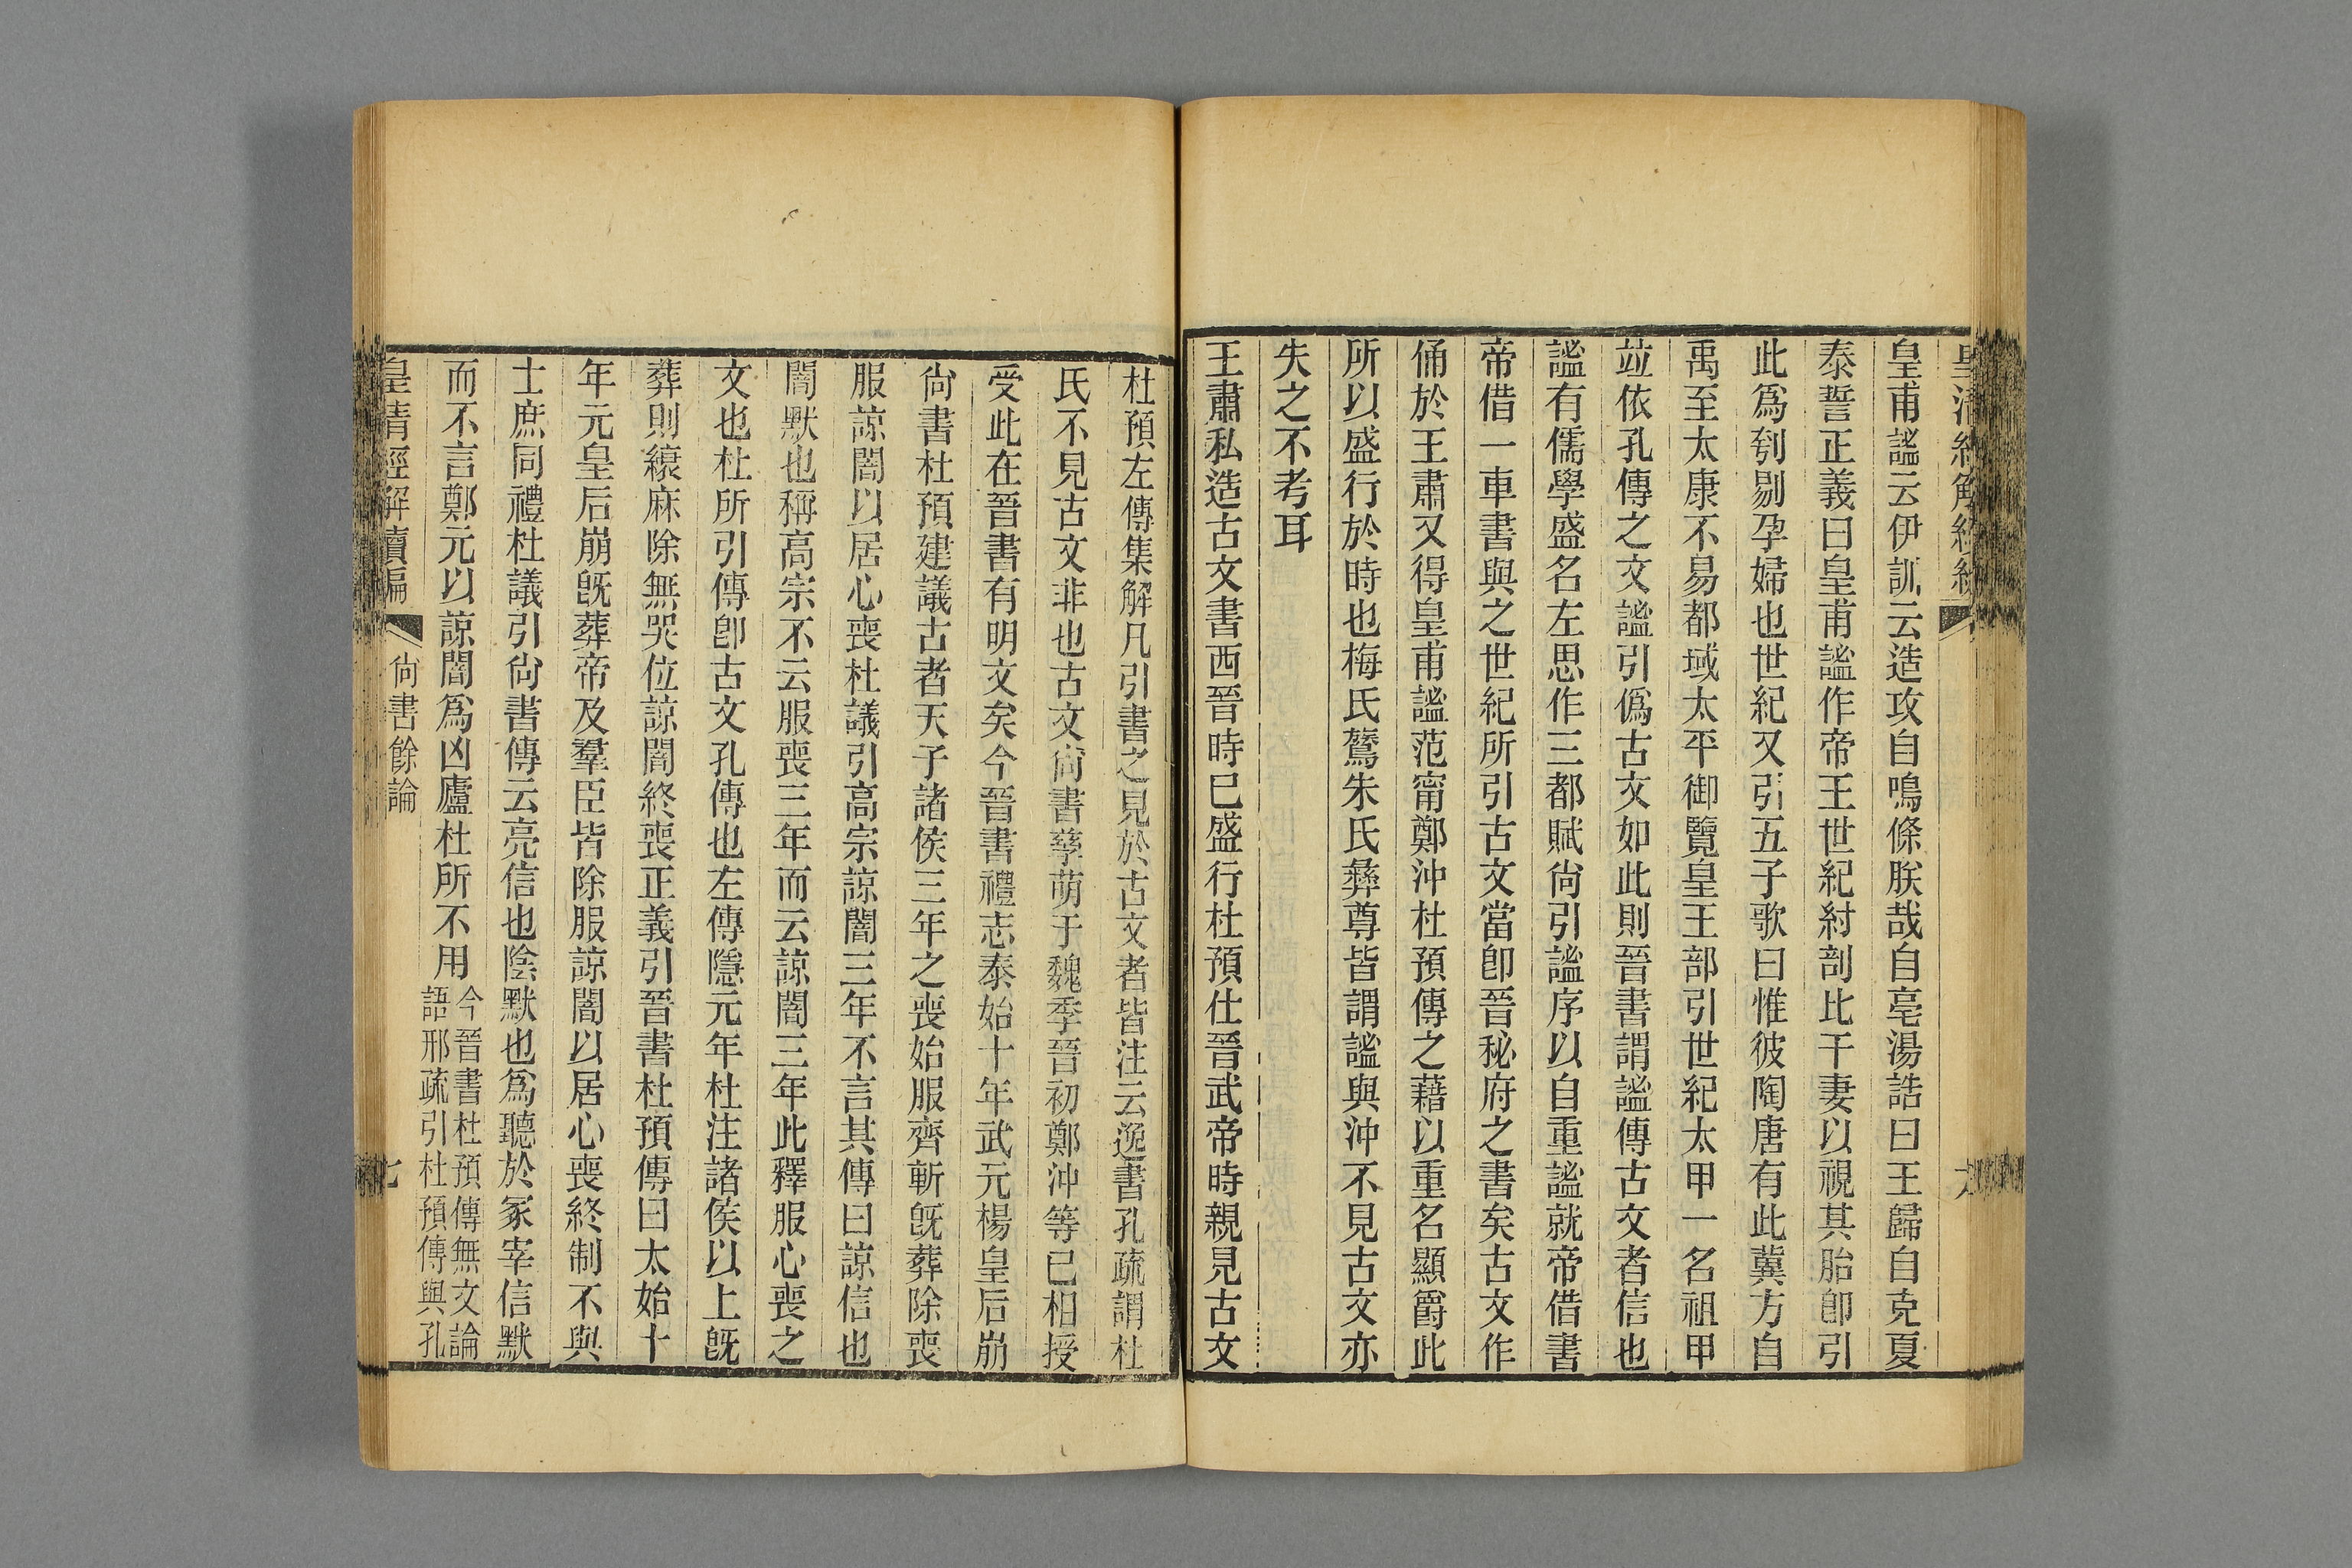 皇清經解續編
六
皇甫謐云伊訓云造攻自鳴條朕哉自亳湯誥曰王歸自克夏
泰誓正義曰皇甫謐作帝王世紀紂剖比干妻以視其胎卽引
此爲刳剔孕婦也世紀又引五子歌曰惟彼陶唐有此冀方自
禹至太康不易都域太平御覽皇王部引世紀太甲一名祖甲
竝依孔傳之文謐引僞古文如此則晉書謂謐傳古文者信也
謐有儒學盛名左思作三都賦尙引謐序以自重謐就帝借書
帝借一車書與之世紀所引古文當卽晉秘府之書矣古文作
俑於王肅又得皇甫謐范甯鄭沖杜預傳之藉以重名顯爵此
所以盛行於時也梅氏鷟朱氏彝尊皆謂謐與沖不見古文亦
失之不考耳
王肅私造古文書西晉時已盛行杜預仕晉武帝時親見古文
杜預左傳集解凡引書之見於古文者皆注云逸書孔疏謂杜
氏不見古文非也古文尙書孳萌于魏季晉初鄭沖等已相授
受此在晉書有明文矣今晉書禮志泰始十年武元楊皇后崩
尙書杜預建議古者天子諸侯三年之喪始服齊斬旣葬除喪
服諒闇以居心喪杜議引高宗諒闇三年不言其傳曰諒信也
闇默也稱高宗不云服喪三年而云諒闇三年此釋服心喪之
文也杜所引傳卽古文孔傳也左傳隱元年杜注諸侯以上旣
葬則縗麻除無哭位諒闇終喪正義引晉書杜預傳曰太始十
年元皇后崩旣葬帝及羣臣皆除服諒闇以居心喪終制不與
士庶同禮杜議引尙書傳云亮信也陰默也爲聽於冢宰信默
而不言鄭元以諒闇爲凶廬杜所不用今晉書杜預傳無文論
語邢疏引杜預傳與孔
皇清經解續編
尙書餘論
七